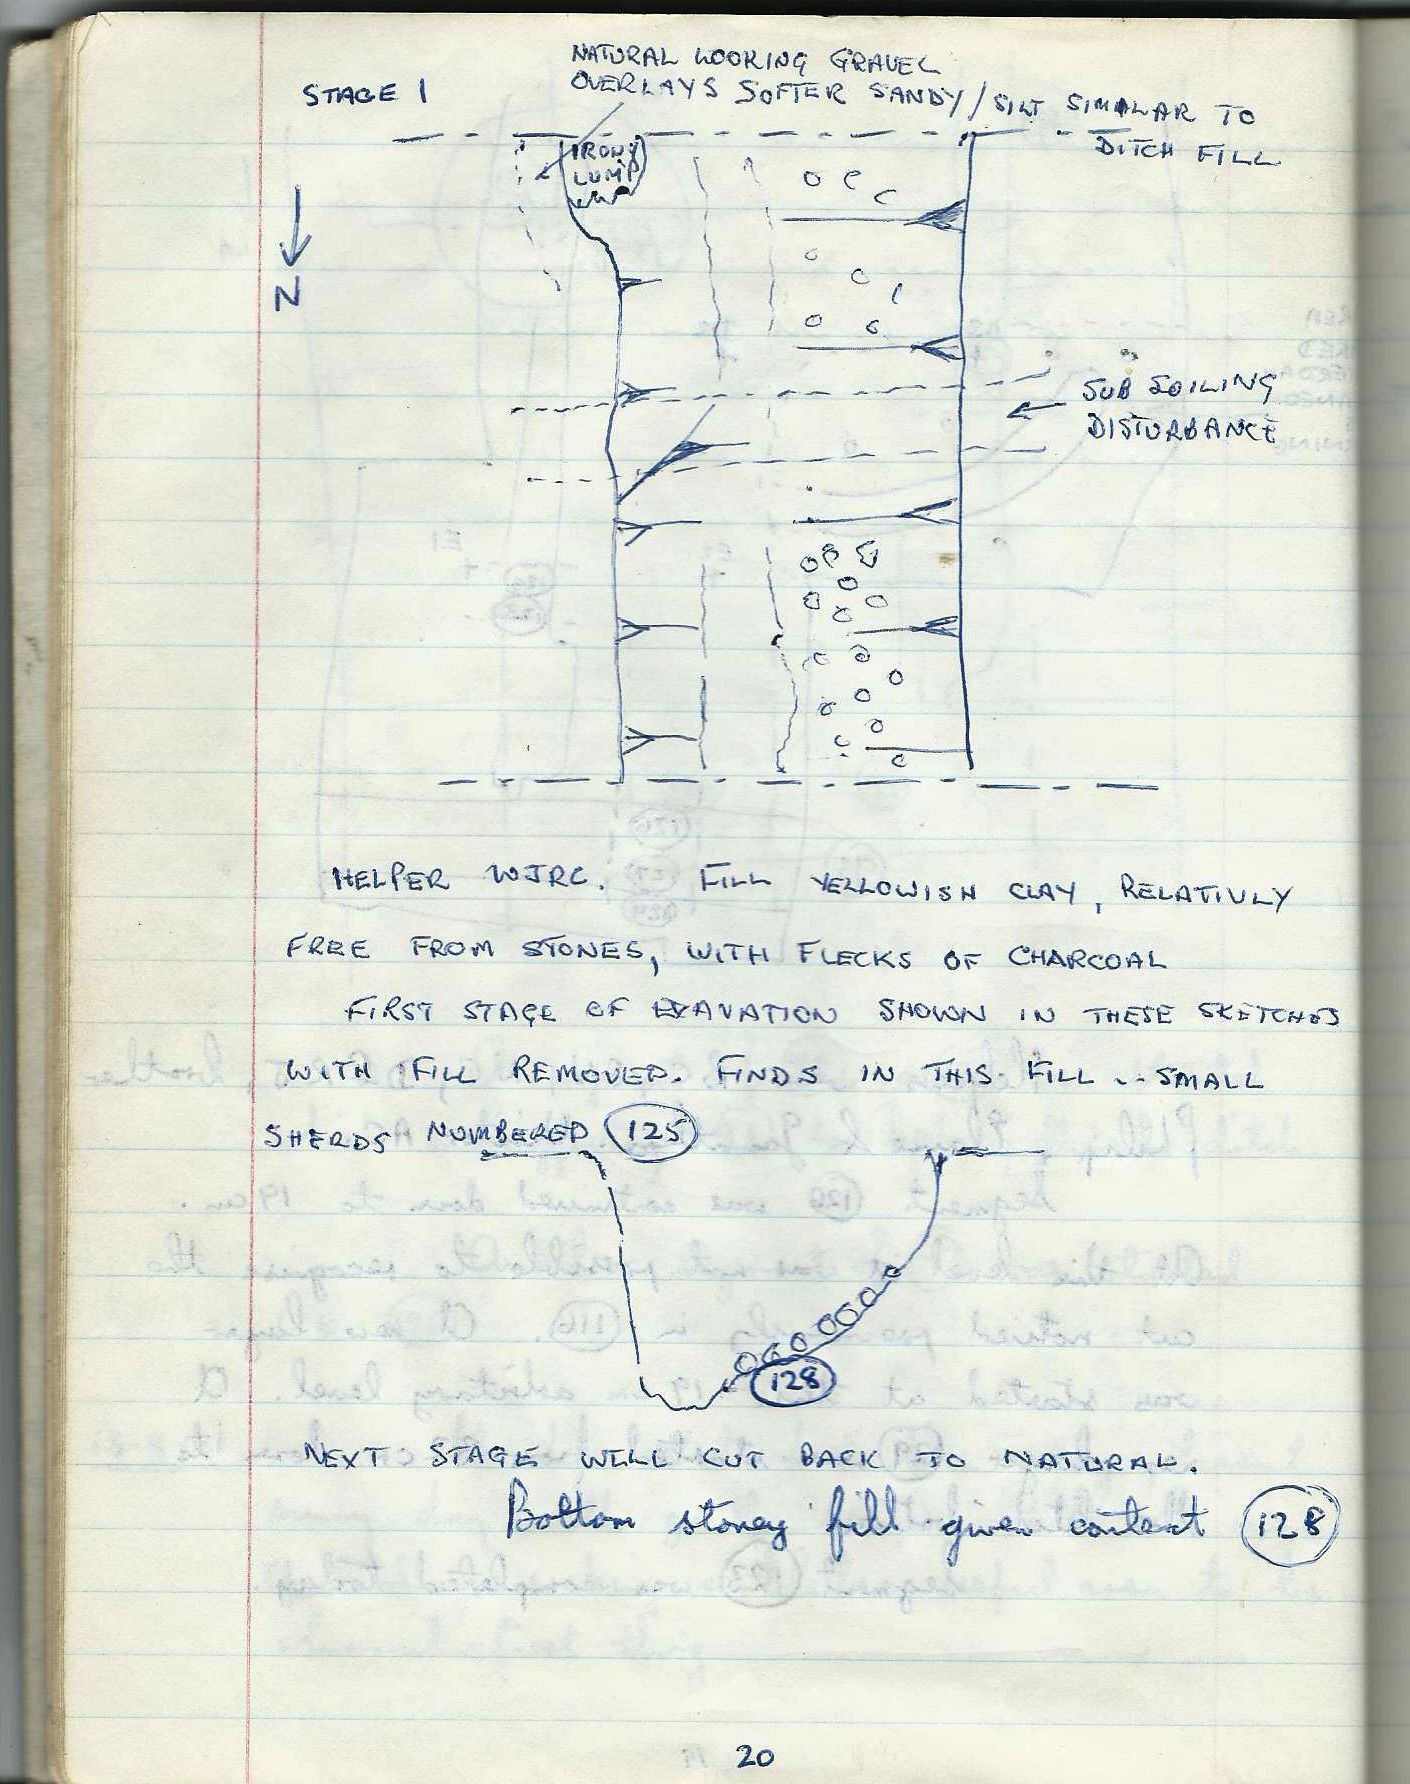 NATURAL LOOKING GRAVEL
STAGE 1
OVERLAYS SOFTER SANDY/SILT SIMALAR TO
DITCH FILL
IRONY
LUMP
N
SUB SOILING
DISTURBANCE
HELPER WJRC. FILL YELLOWISH CLAY, RELATIVLY
FREE FROM STONES, WITH FLECKS OF CHARCOAL
FIRST STAGE OF EXAVATION SHOWN IN THESE SKETCHES
WITH FILL REMOVED. FINDS IN THIS FILL -- SMALL
SHERDS NUMBERED 125
128
NEXT STAGE WILL CUT BACK TO NATURAL.
Bottom stoney fill given context 128
20